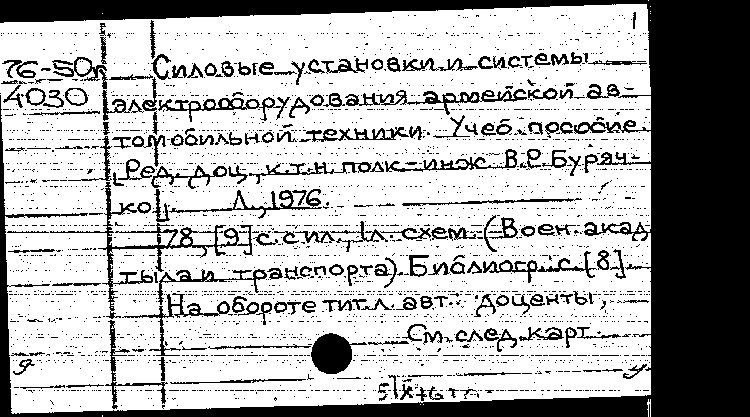 1
76-50к Силовые установки и системы
4030 электрооборудования армейской ав-
томобильной техники. Учеб. пособие.
[Ред. доц., к.т.н. полк.-инж. В.Р. Буряч-
ко]. Л., 1976.
78, [9] с. с ил.; 1 л. схем. (Воен. акад.
тыла и транспорта). Библиогр.: с. [8]
На обороте тит. л. авт.: доценты,
См. след. карт.